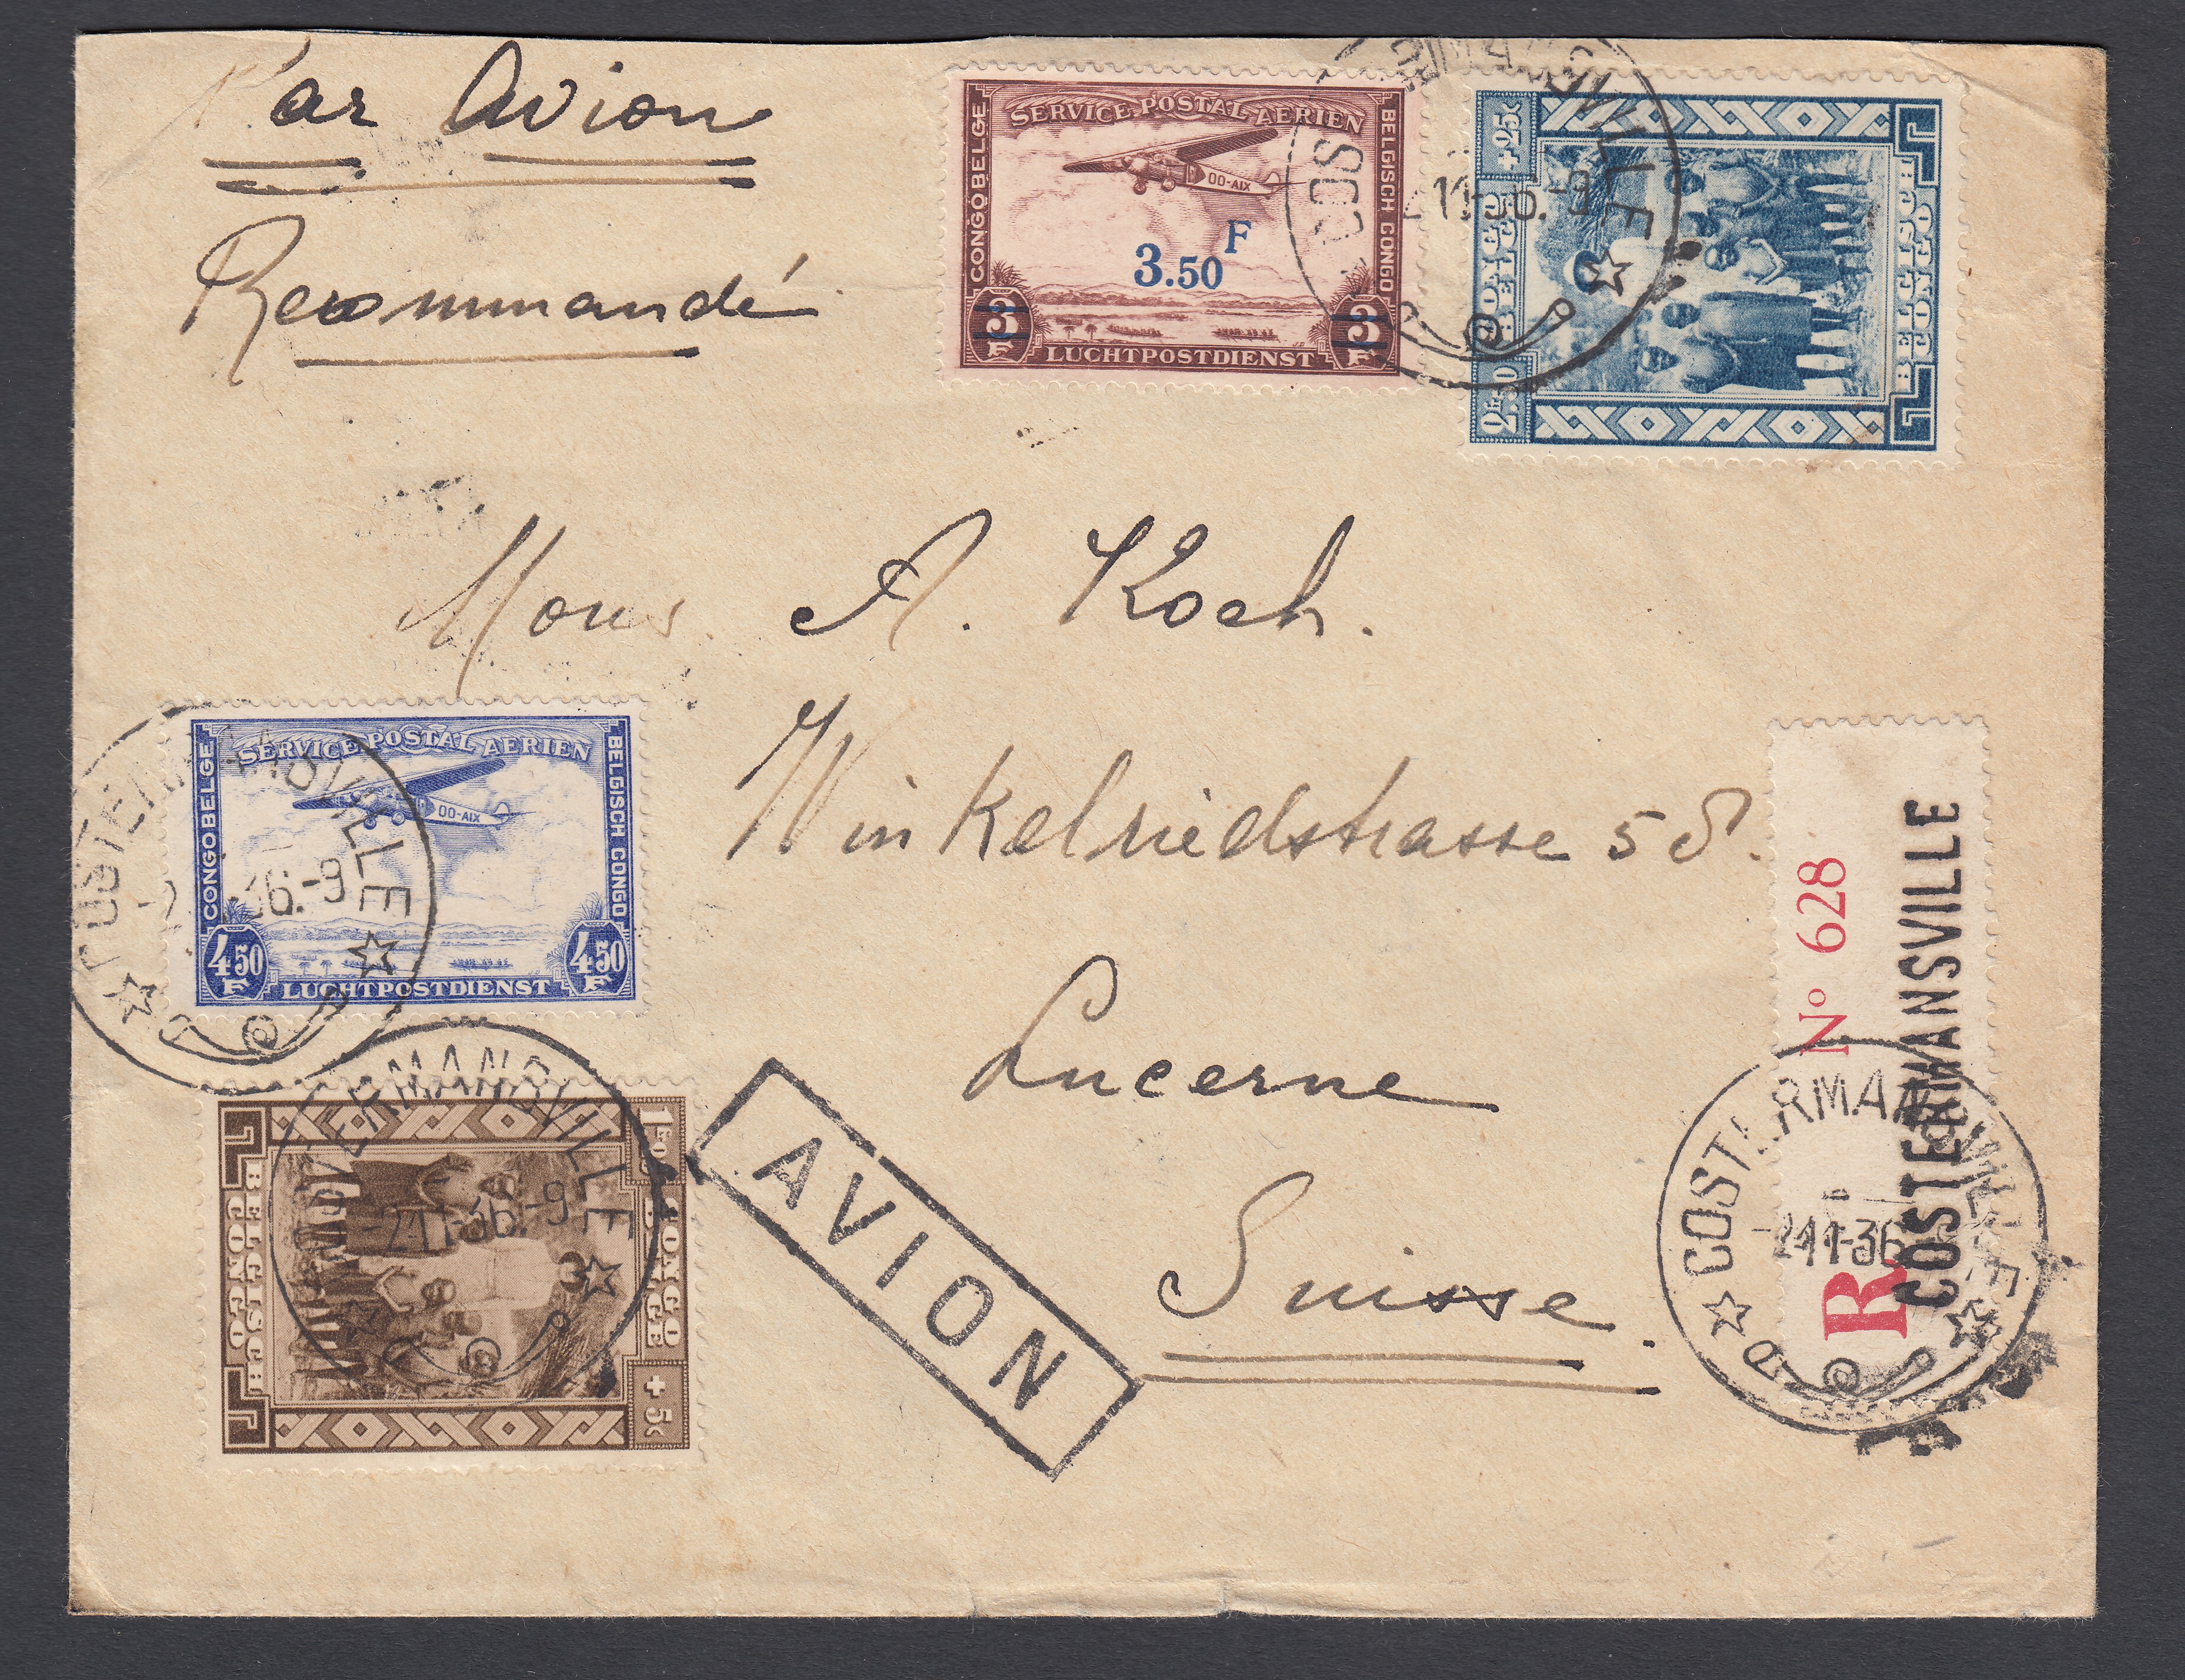 Par Avion
Recommandé
SERVICE POSTAL AERIEN
CONGO BELGE
BELGISCH CONGO
OO-AIX
3.50 F
3 F
3 F
LUCHTPOSTDIENST
+25c
CONGO BELGE
BELGISCH CONGO
11-36.-9
Mons. A. Koch.
Winkelriedstrasse 58.
Lucerne
Suisse.
SERVICE POSTAL AERIEN
CONGO BELGE
BELGISCH CONGO
OO-AIX
4.50 F
4.50 F
LUCHTPOSTDIENST
36.-9
COSTERMANSVILLE
-2-11-36.-9
BELGISCH CONGO
CONGO BELGE
+5c
AVION
N° 628
R
COSTERMANSVILLE
COSTERMANSVILLE
-2-11-36
D